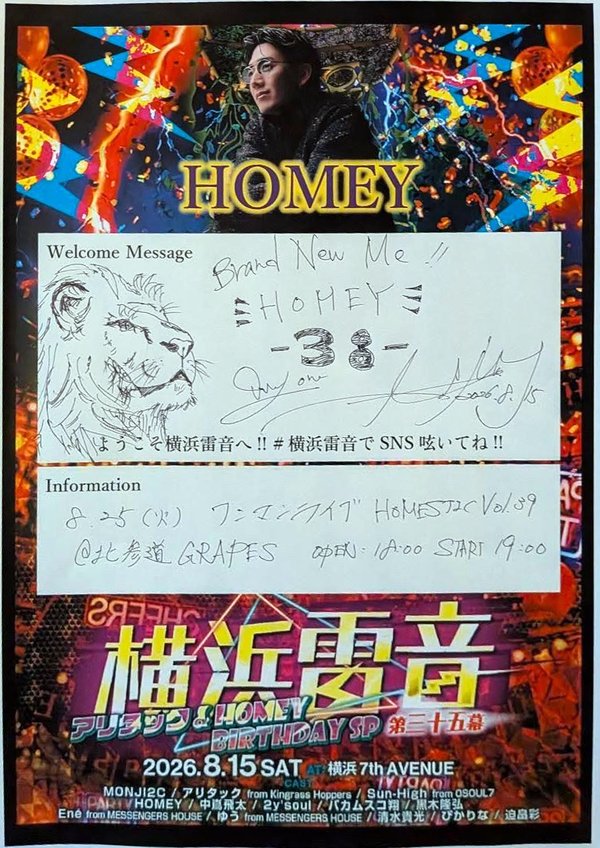 HOMEY
Welcome Message
Brand New Me!!
HOMEY
-38-
2026.8.15
ようこそ横浜雷音へ!!#横浜雷音でSNS呟いてね!!
Information
8.25(火) ワンマンライブ HOMESTIC Vol.39
@北参道 GRAPES OPEN:18:00 START 19:00
横浜雷音
アリタック&HOMEY
BIRTHDAY SP 第三十五幕
2026.8.15 SAT AT 横浜 7th AVENUE
CAST
MONJI2C / アリタック from Kingrass Hoppers / Sun-High from OSOUL7
HOMEY / 中嶌飛太 / 2y'soul / バカムスコ翔 / 黒木隆弘
Ené from MESSENGERS HOUSE / ゆう from MESSENGERS HOUSE / 清水貴光 / ぴかりな / 迫畠彩